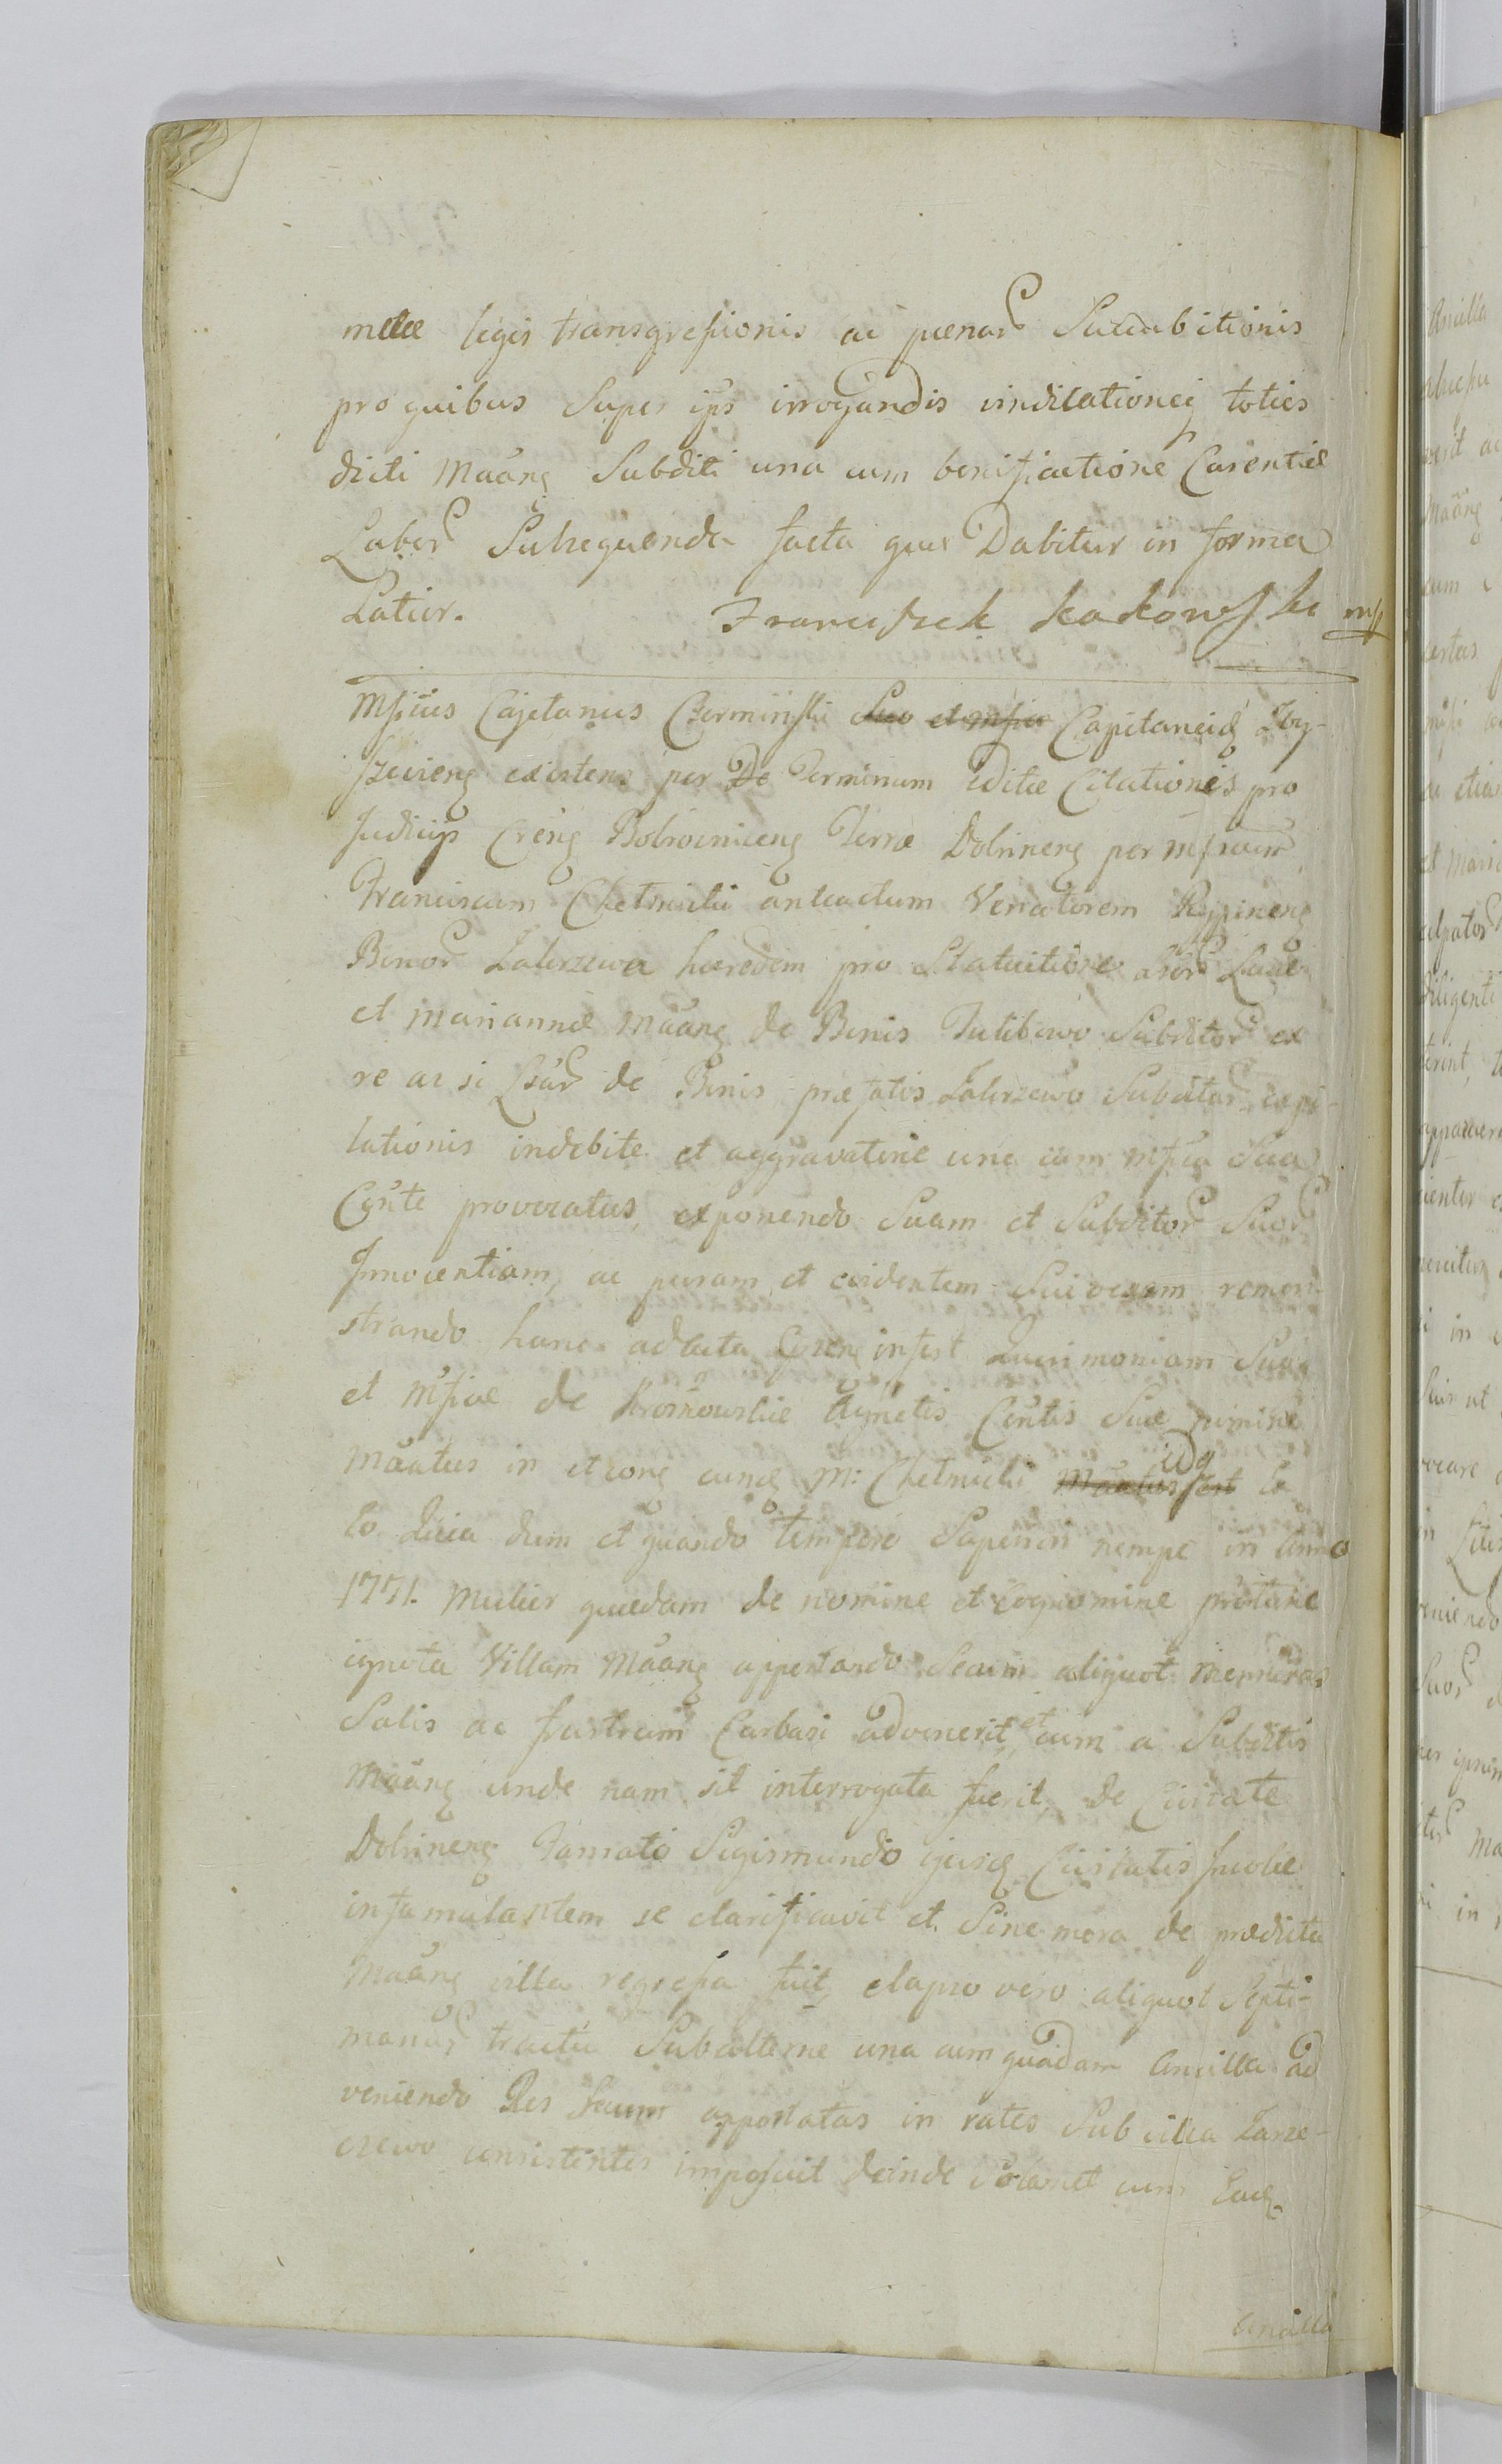 metæ legis transgressionis ac pænar Succubitionis
pro quibus Super ijs irrogandis vindicationeq toties
dicti Maanq Subditi una cum bonificatione Carentiæ
Labor Subsequenda facta quæ Dabitur in forma
Latior. Franciszek kakowski mp
Mficus Cajetanus Czerminski Capitaneid
existens per De Terminum editæ Citationes pro
Judicijs Crenq Bobrovnicenq Terræ Dobrinenq per Mficum
Franciscum Chełmicki anteactum Venatorem Rypinenq
Bonor Zakrzewa hæredem pro Statuitione Lucæ
et Mariannæ Maanq de Bonis Tulibowo Subditor ex
re ac si de Bonis præfatis Zakrzewo Subditar expi-
lationis indebite et aggravatorie una cum Mfica Sua
Conte provocatus, exponendo Suam et Subditor Suor
Innocentiam, ac puram et evidentem Sui remon-
strando hanc ad acta infert Quærimoniam Suo
et Mficæ de Agnetis Contis Suæ nomine
Maatus in et cunq M: Chełmicki idq Ex
eo quia dum et quando tempore nempe in Anno
1771. Mulier quædam de nomine et cognomine
ignota Villam Maanq apportando Secum aliquot mensuras
Salis ac frustrum Carbasi advenerit, et cum a Subditis
Maanq unde nam sit interrogata fuerit, de Civitate
Dobrinenq famato Sigismundo ejusq Civitatis Incolæ
infamulantem se clarificavit et Sine mora de prædicta
Maanq villa regressa fuit, elapso vero aliquot Septi-
manar tractu una cum quadam Ancilla ad
veniendo Res Secum apportatas in rates Sub villa
consistentes imposuit deinde cum Eadq
Ancilla